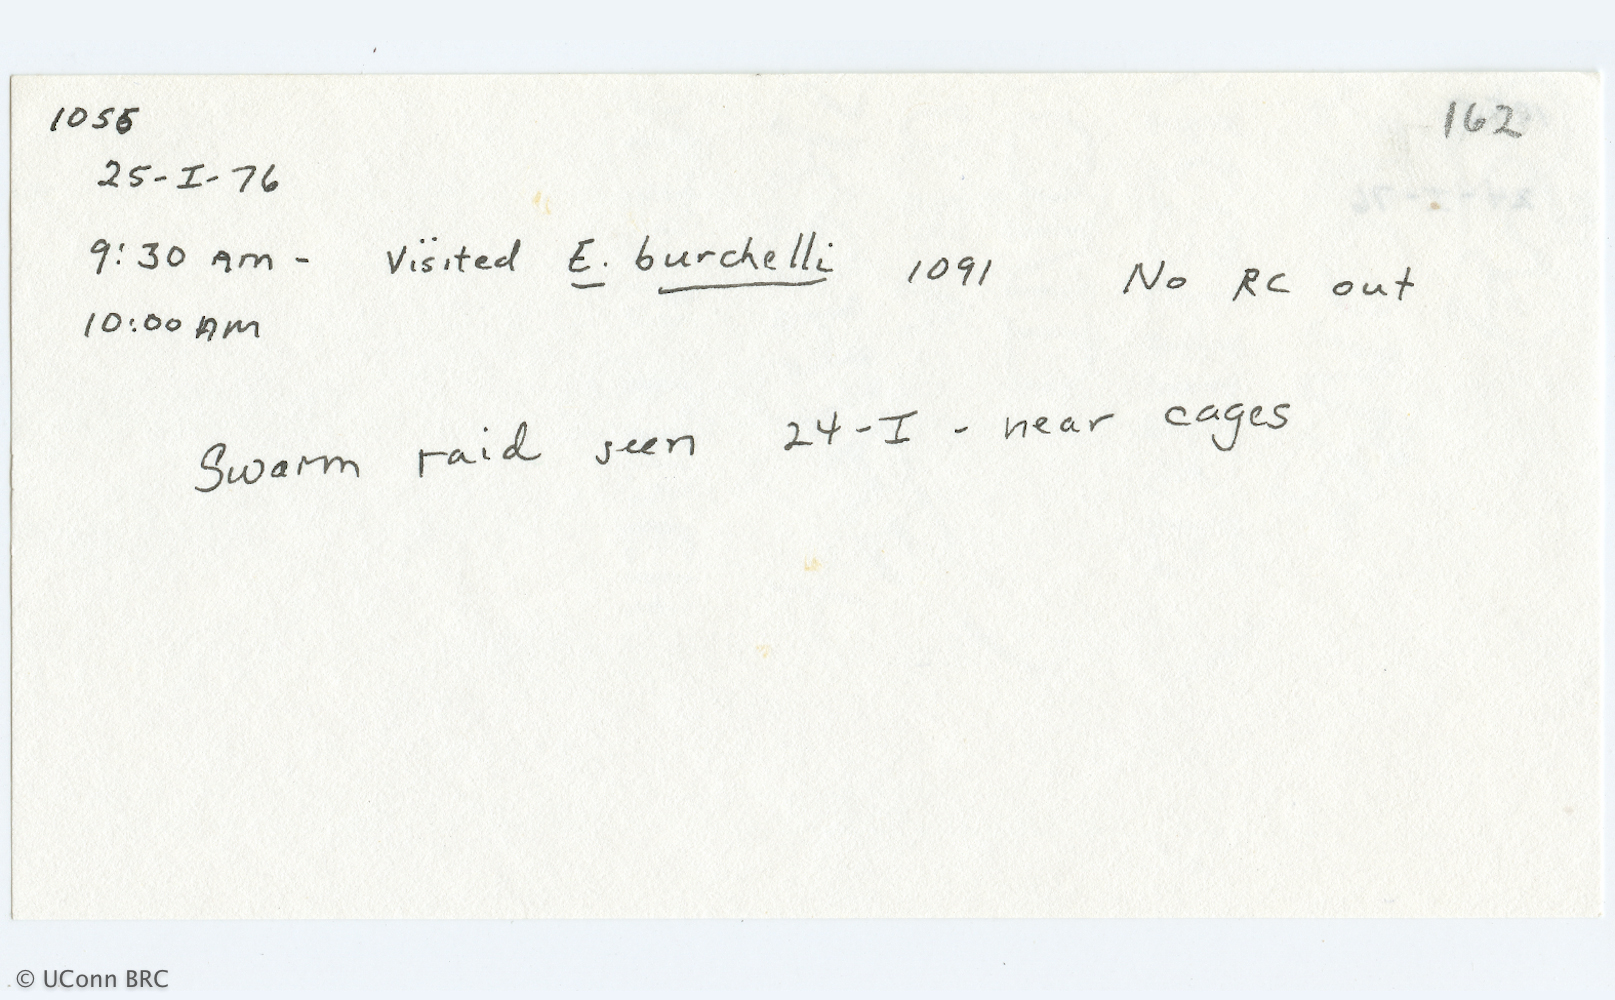 1055
162
25-I-76
9:30 AM - Visited E. burchelli 1091 No RC out
10:00 AM
Swarm raid seen 24-I - near cages
© UConn BRC